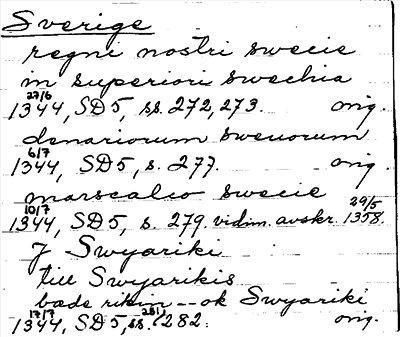 Sverige
regni nostri swecie
in superiori swechia
27/6
1344, SD5, ss. 272, 273. orig.
denariorum sweuorum
6/7
1344, SD5, s. 277. orig.
marscalco swecie
10/7 29/5
1344, SD5, s. 279. vidim. avskr. 1358.
J Swyariki
till Swyarikis
bade rikin -- ok Swyariki
17/7 281,
1344, SD5, ss. 282. orig.